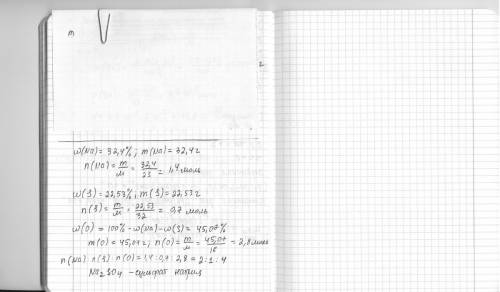 m
2
w(Na) = 32,4%; m(Na) = 32,4г
n(Na) = m/м = 32,4/23 = 1,4 моль
w(S) = 22,53%; m(S) = 22,53г
n(S) = m/м = 22,53/32 = 0,7 моль
w(O) = 100% - w(Na) - w(S) = 45,07%
m(O) = 45,07г; n(O) = m/м = 45,07/16 = 2,8 моль
n(Na) : n(S) : n(O) = 1,4 : 0,7 : 2,8 = 2:1:4
Na2SO4 - сульфат натрия